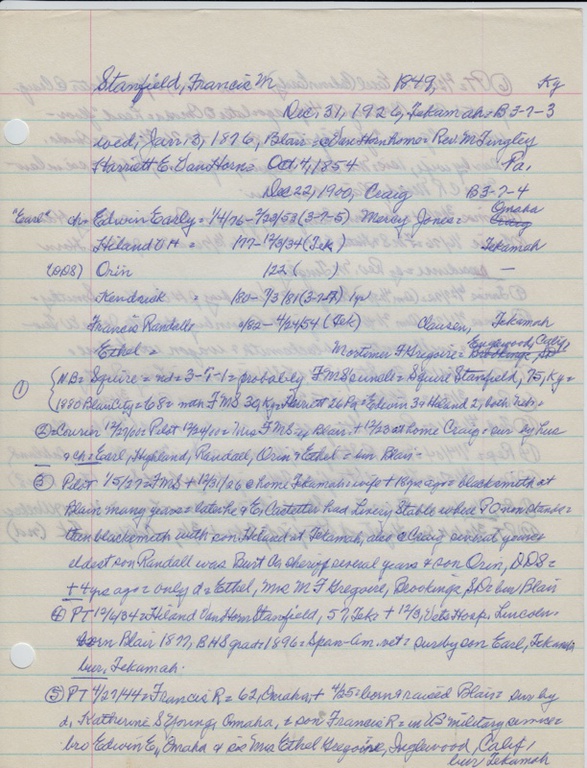 Stanfield, Francis M 1849, Ky
Dec, 31, 1926, Tekamah = B 3-7-3
wed, Jan 13, 1876, Blair = @ Van Horn home = Rev McTingley
Harriett E. Van Horn = Oct, 4, 1854 Pa,
Dec 22, 1900, Craig B 3-7-4
"Earl" ch = Edwin Early = 1/4/76 - 7/20/53 (3-7-5) Mercy Jones = Omaha
Hiland V H = 1877 - 12/3/34 (Tek) Tekamah
(DDS) Orin 122 ( ) —
Kendrick 180 - 7/3/81 (3-7-7) 1 yr
Francis Randall = 9/82 - 4/24/54 (Tek) Clausen, Tekamah
Ethel = Mortimer F Gregoire = Inglewood, Calif,
① { NB = Squire = nd = 3-7-1 = probably F M S's uncle = Squire Stanfield, 75, Ky =
1880 Blair City = 68 = man F M S 30, Ky = Harriett 26 Pa = Edwin 3 & Hiland 2, both Neb =
② = Courier 12/27/00 = Pilot 12/24/00 = Mrs F M S, Blair, + 12/23 at home Craig = sur by hus
& ch = Earl, Highland, Randall, Orin & Ethel = bur Blair =
③ Pilot 1/5/27 = F M S + 12/31/26 @ home Tekamah = wife + 18 yrs ago = blacksmith at
Blair many years = later he & E, Castetter had Livery Stable where
then blacksmith with son Hiland at Tekamah, also @ Craig several years
eldest son Randall was Burt Co sheriff several years & son Orin, DDS =
+ 4 yrs ago = only d = Ethel, Mrs M F Gregoire, Brookings, S D = bur Blair
④ PT 12/6/34 = Hiland Van Horn Stanfield, 57, Tek = + 12/3, Vets Hosp, Lincoln =
born Blair 1877, B H S grad = 1896 = Span-Am vet = sur by son Earl, Tekamah
bur, Tekamah.
⑤ PT 4/27/44 = Francis R = 62, Omaha, + 4/25 = born & raised Blair = sur by
d, Katherine S Young, Omaha, & son Francis R = in US military service =
bro Edwin E, Omaha & sis Mrs Ethel Gregoire, Inglewood, Calif,
bur, Tekamah